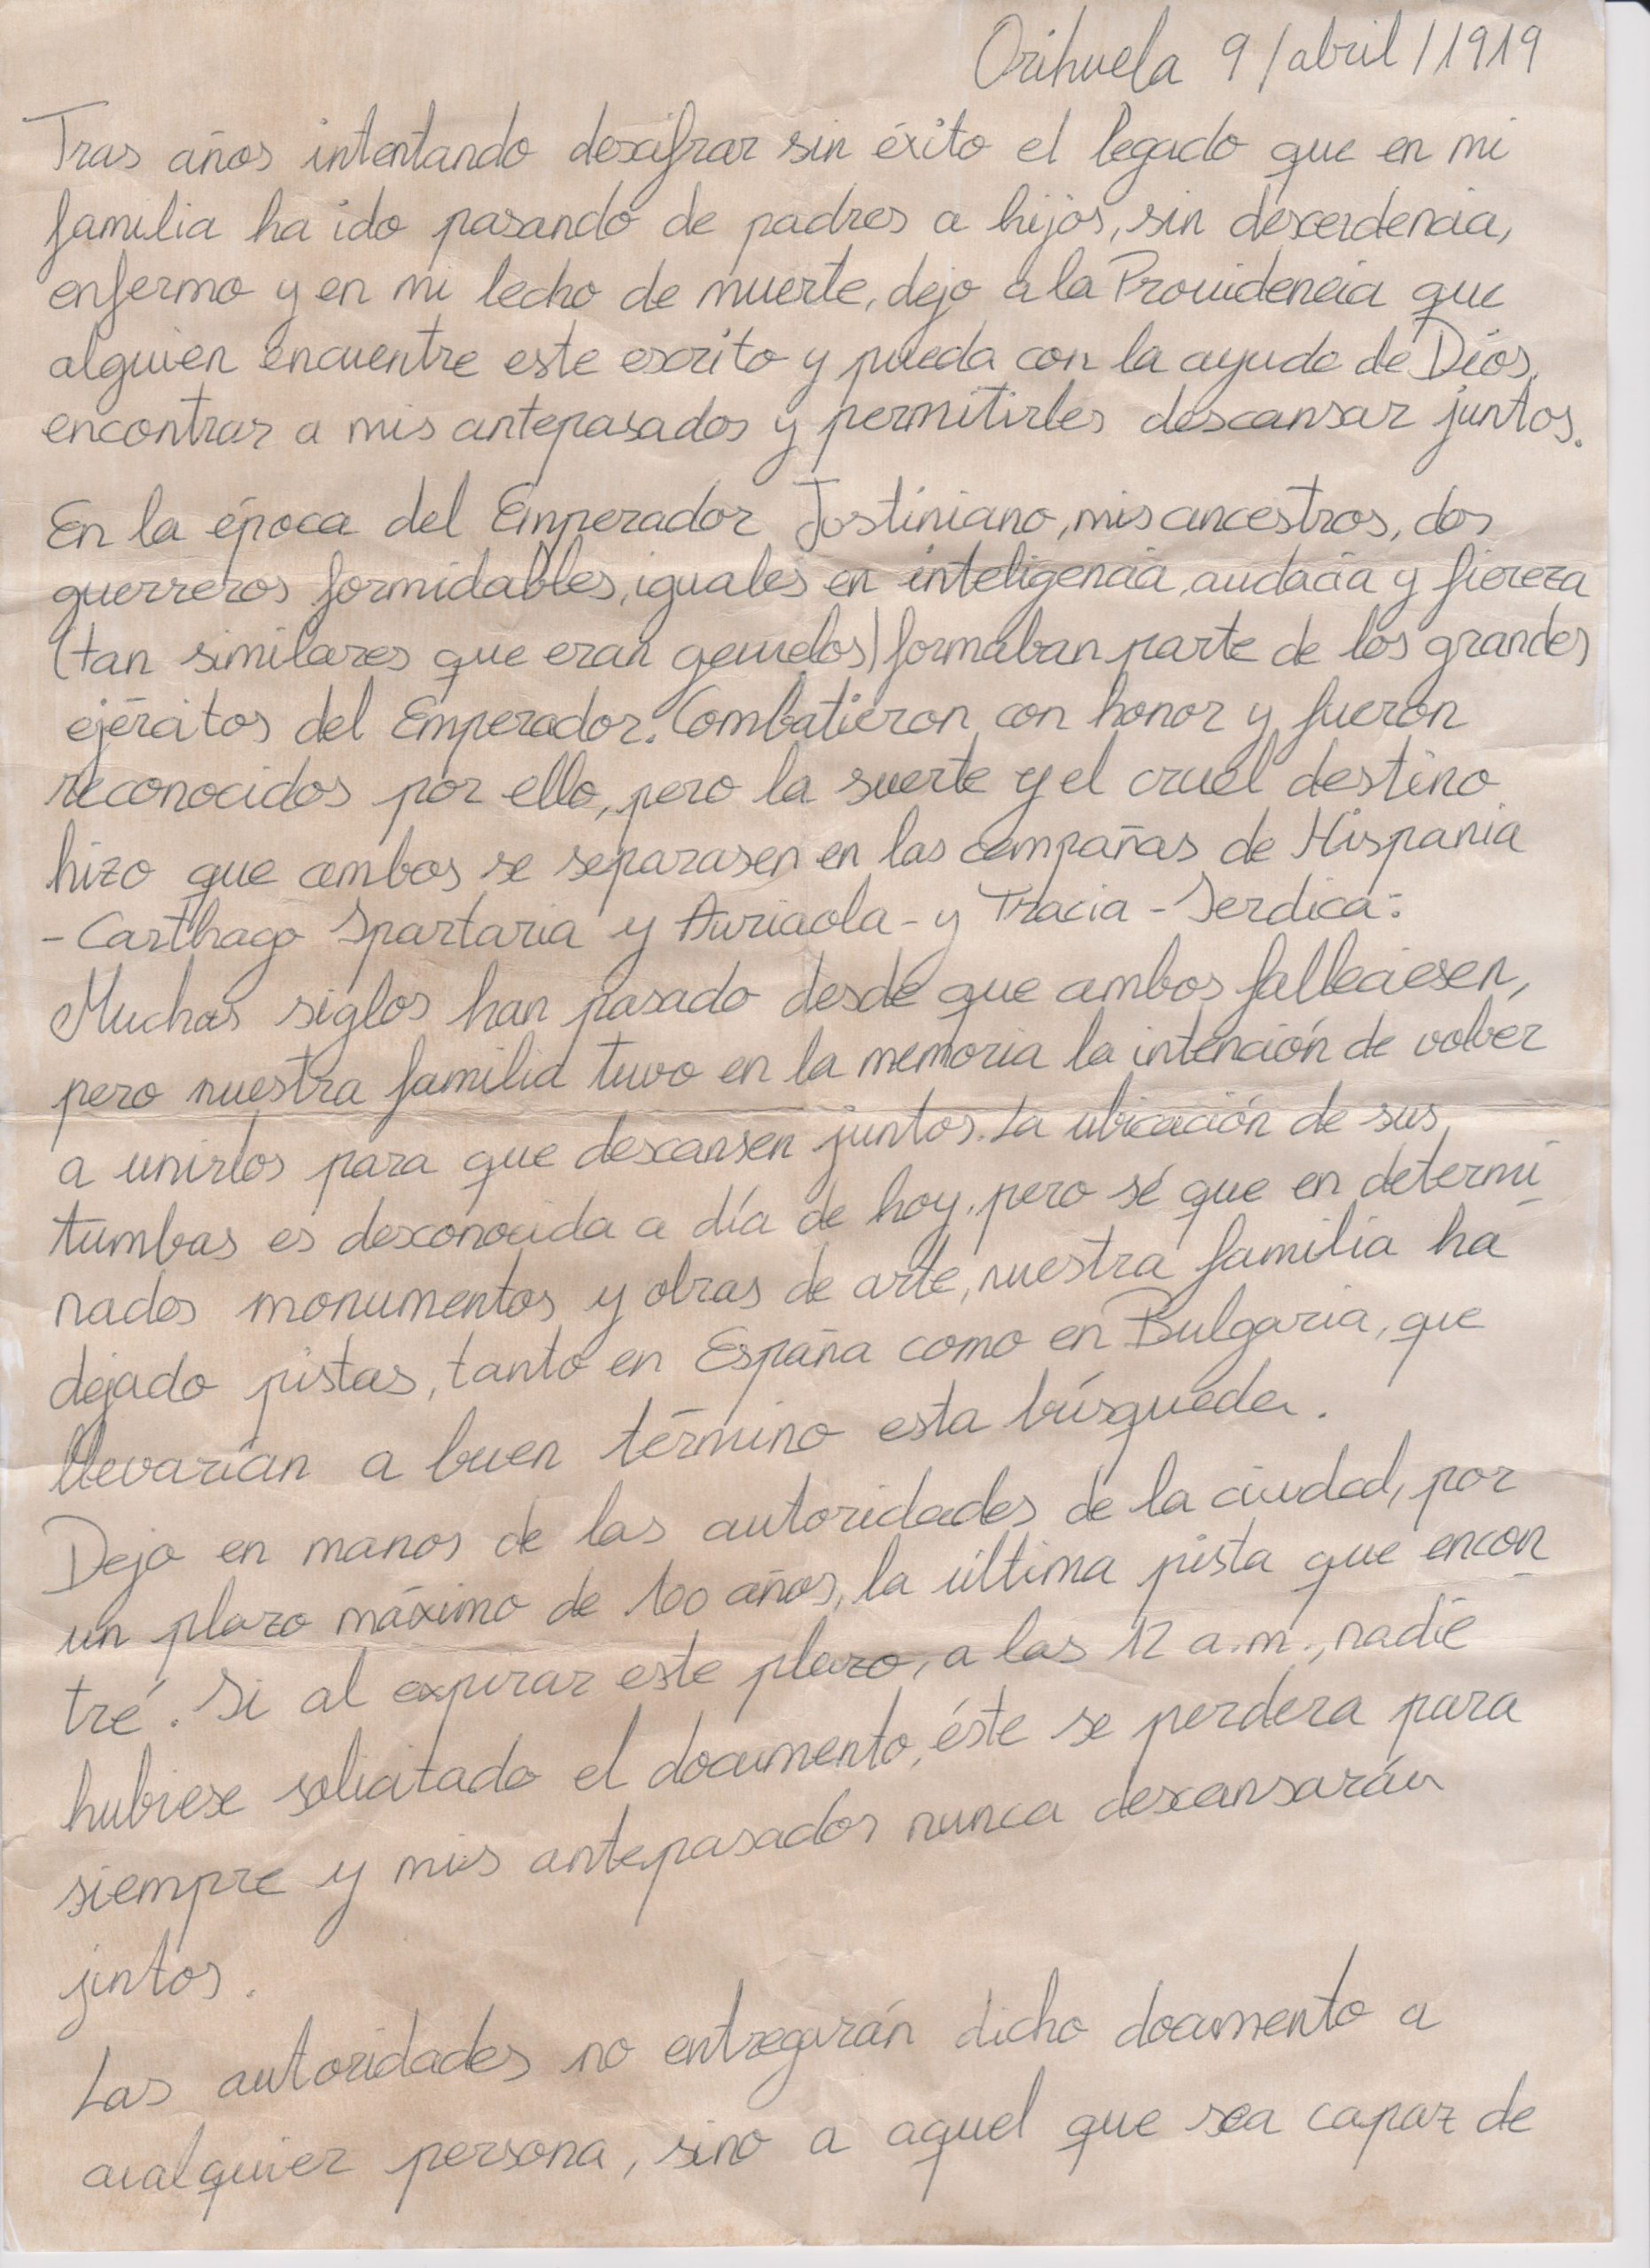 Orihuela 9/abril/1919
Tras años intentando descifrar sin éxito el legado que en mi
familia ha ido pasando de padres a hijos, sin descendencia,
enfermo y en mi lecho de muerte, dejo a la Providencia que
alguien encuentre este escrito y pueda con la ayuda de Dios,
encontrar a mis antepasados y permitirles descansar juntos.
En la época del Emperador Justiniano, mis ancestros, dos
guerreros formidables, iguales en inteligencia, audacia y fiereza
(tan similares que eran gemelos) formaban parte de los grandes
ejércitos del Emperador. Combatieron con honor y fueron
reconocidos por ello, pero la suerte y el cruel destino
hizo que ambos se separasen en las campañas de Hispania
- Carthago Spartaria y Auriaola - y Tracia - Serdica:
Muchos siglos han pasado desde que ambos falleciesen,
pero nuestra familia tuvo en la memoria la intención de volver
a unirlos para que descansen juntos. La ubicación de sus
tumbas es desconocida a día de hoy, pero sé que en determi-
nados monumentos y obras de arte, nuestra familia ha
dejado pistas, tanto en España como en Bulgaria, que
llevarían a buen término esta búsqueda.
Dejo en manos de las autoridades de la ciudad, por
un plazo máximo de 100 años, la última pista que encon-
tré. Si al expirar este plazo, a las 12 a.m., nadie
hubiese solicitado el documento, éste se perdera para
siempre y mis antepasados nunca descansarán
juntos.
Las autoridades no entregarán dicho documento a
cualquier persona, sino a aquel que sea capaz de